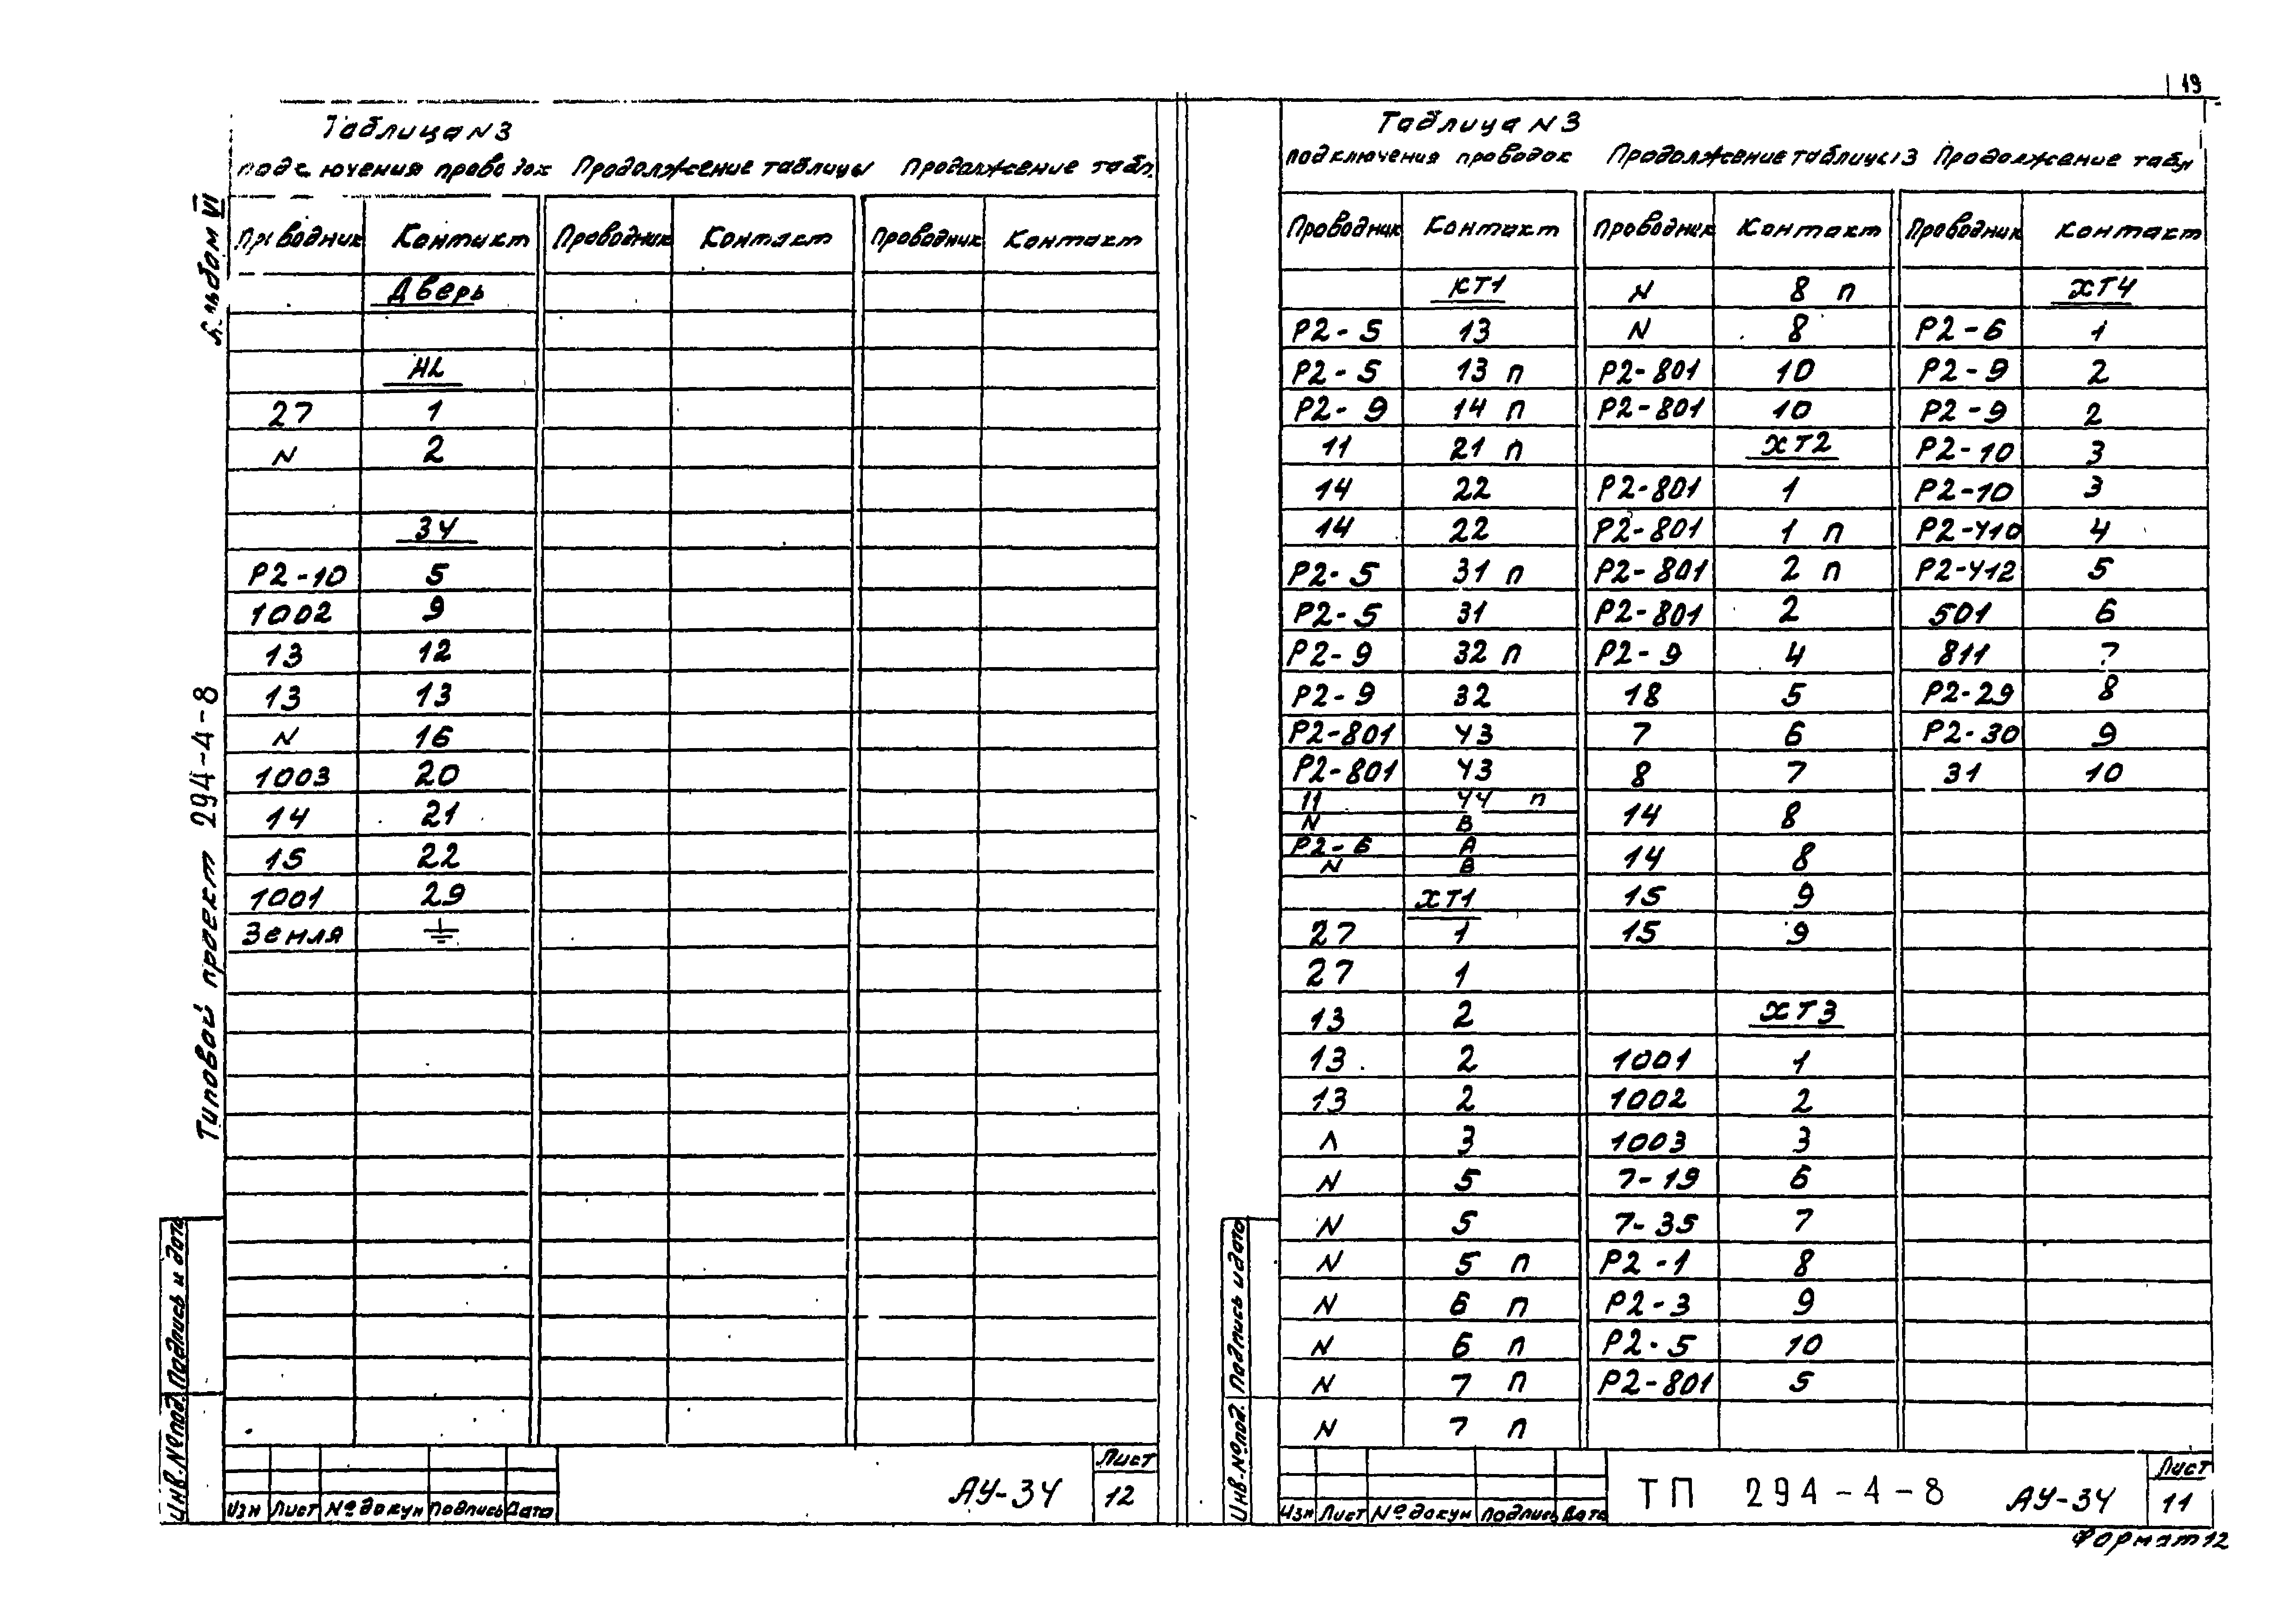 19
Таблица N3
подключения проводок Продолжение таблицы Продолжение табл.
Проводник Контакт Проводник Контакт Проводник Контакт
Дверь
HL
27 1
N 2
34
P2-10 5
1002 9
13 12
13 13
N 16
1003 20
14 21
15 22
1001 29
Земля ⏚
Изм Лист № докум Подпись Дата
АУ-34
Лист
12
Альбом VI
Типовой проект 294-4-8
Подпись и дата
Инв.№ под.
Таблица N3
подключения проводок Продолжение таблицы 3 Продолжение табл
Проводник Контакт Проводник Контакт Проводник Контакт
КТ1 N 8 п ХТ4
P2-5 13 N 8 P2-6 1
P2-5 13 п P2-801 10 P2-9 2
P2-9 14 п P2-801 10 P2-9 2
11 21 п ХТ2 P2-10 3
14 22 P2-801 1 P2-10 3
14 22 P2-801 1 п P2-410 4
P2-5 31 п P2-801 2 п P2-412 5
P2-5 31 P2-801 2 501 6
P2-9 32 п P2-9 4 811 7
P2-9 32 18 5 P2-29 8
P2-801 43 7 6 P2-30 9
P2-801 43 8 7 31 10
11 44 п 14 8
N В
P2-6 А 14 8
N В
ХТ1 15 9
27 1 15 9
27 1
13 2 ХТ3
13 2 1001 1
13 2 1002 2
3 1003 3
N 5 7-19 6
N 5 7-35 7
N 5 п P2-1 8
N 6 п P2-3 9
N 6 п P2-5 10
N 7 п P2-801 5
N 7 п
Изм Лист № докум Подпись Дата
ТП 294-4-8 АУ-34
Лист
11
Подпись и дата
Инв.№ под.
Формат 12